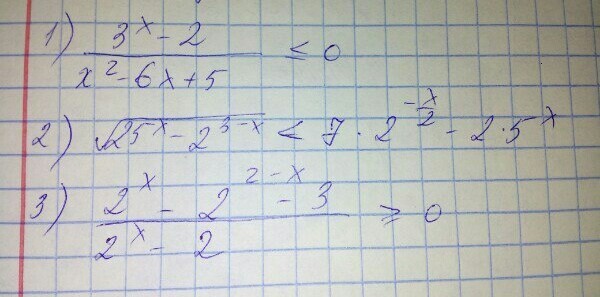 1) (3^x - 2) / (x^2 - 6x + 5) ≤ 0
2) √(25^x - 2^(3-x)) < 7 · 2^(-x/2) - 2 · 5^x
3) (2^x - 2^(2-x) - 3) / (2^x - 2) ≥ 0